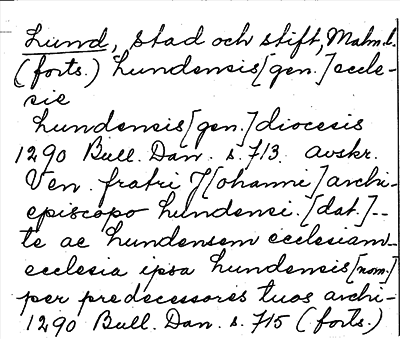 Lund, stad och stift, Malm.l.
(forts.) Lundensis [gen.] eccle-
sie
Lundensis [gen.] diocesis
1290 Bull. Dan. s. 713. avskr.
Ven. fratri J[ohanni] archi-
episcopo Lundensi. [dat.]--
te ac Lundensem ecclesiam--
ecclesia ipsa Lundensis [nom.]
per predecessores tuos archi-
1290 Bull. Dan. s. 715 (forts.)